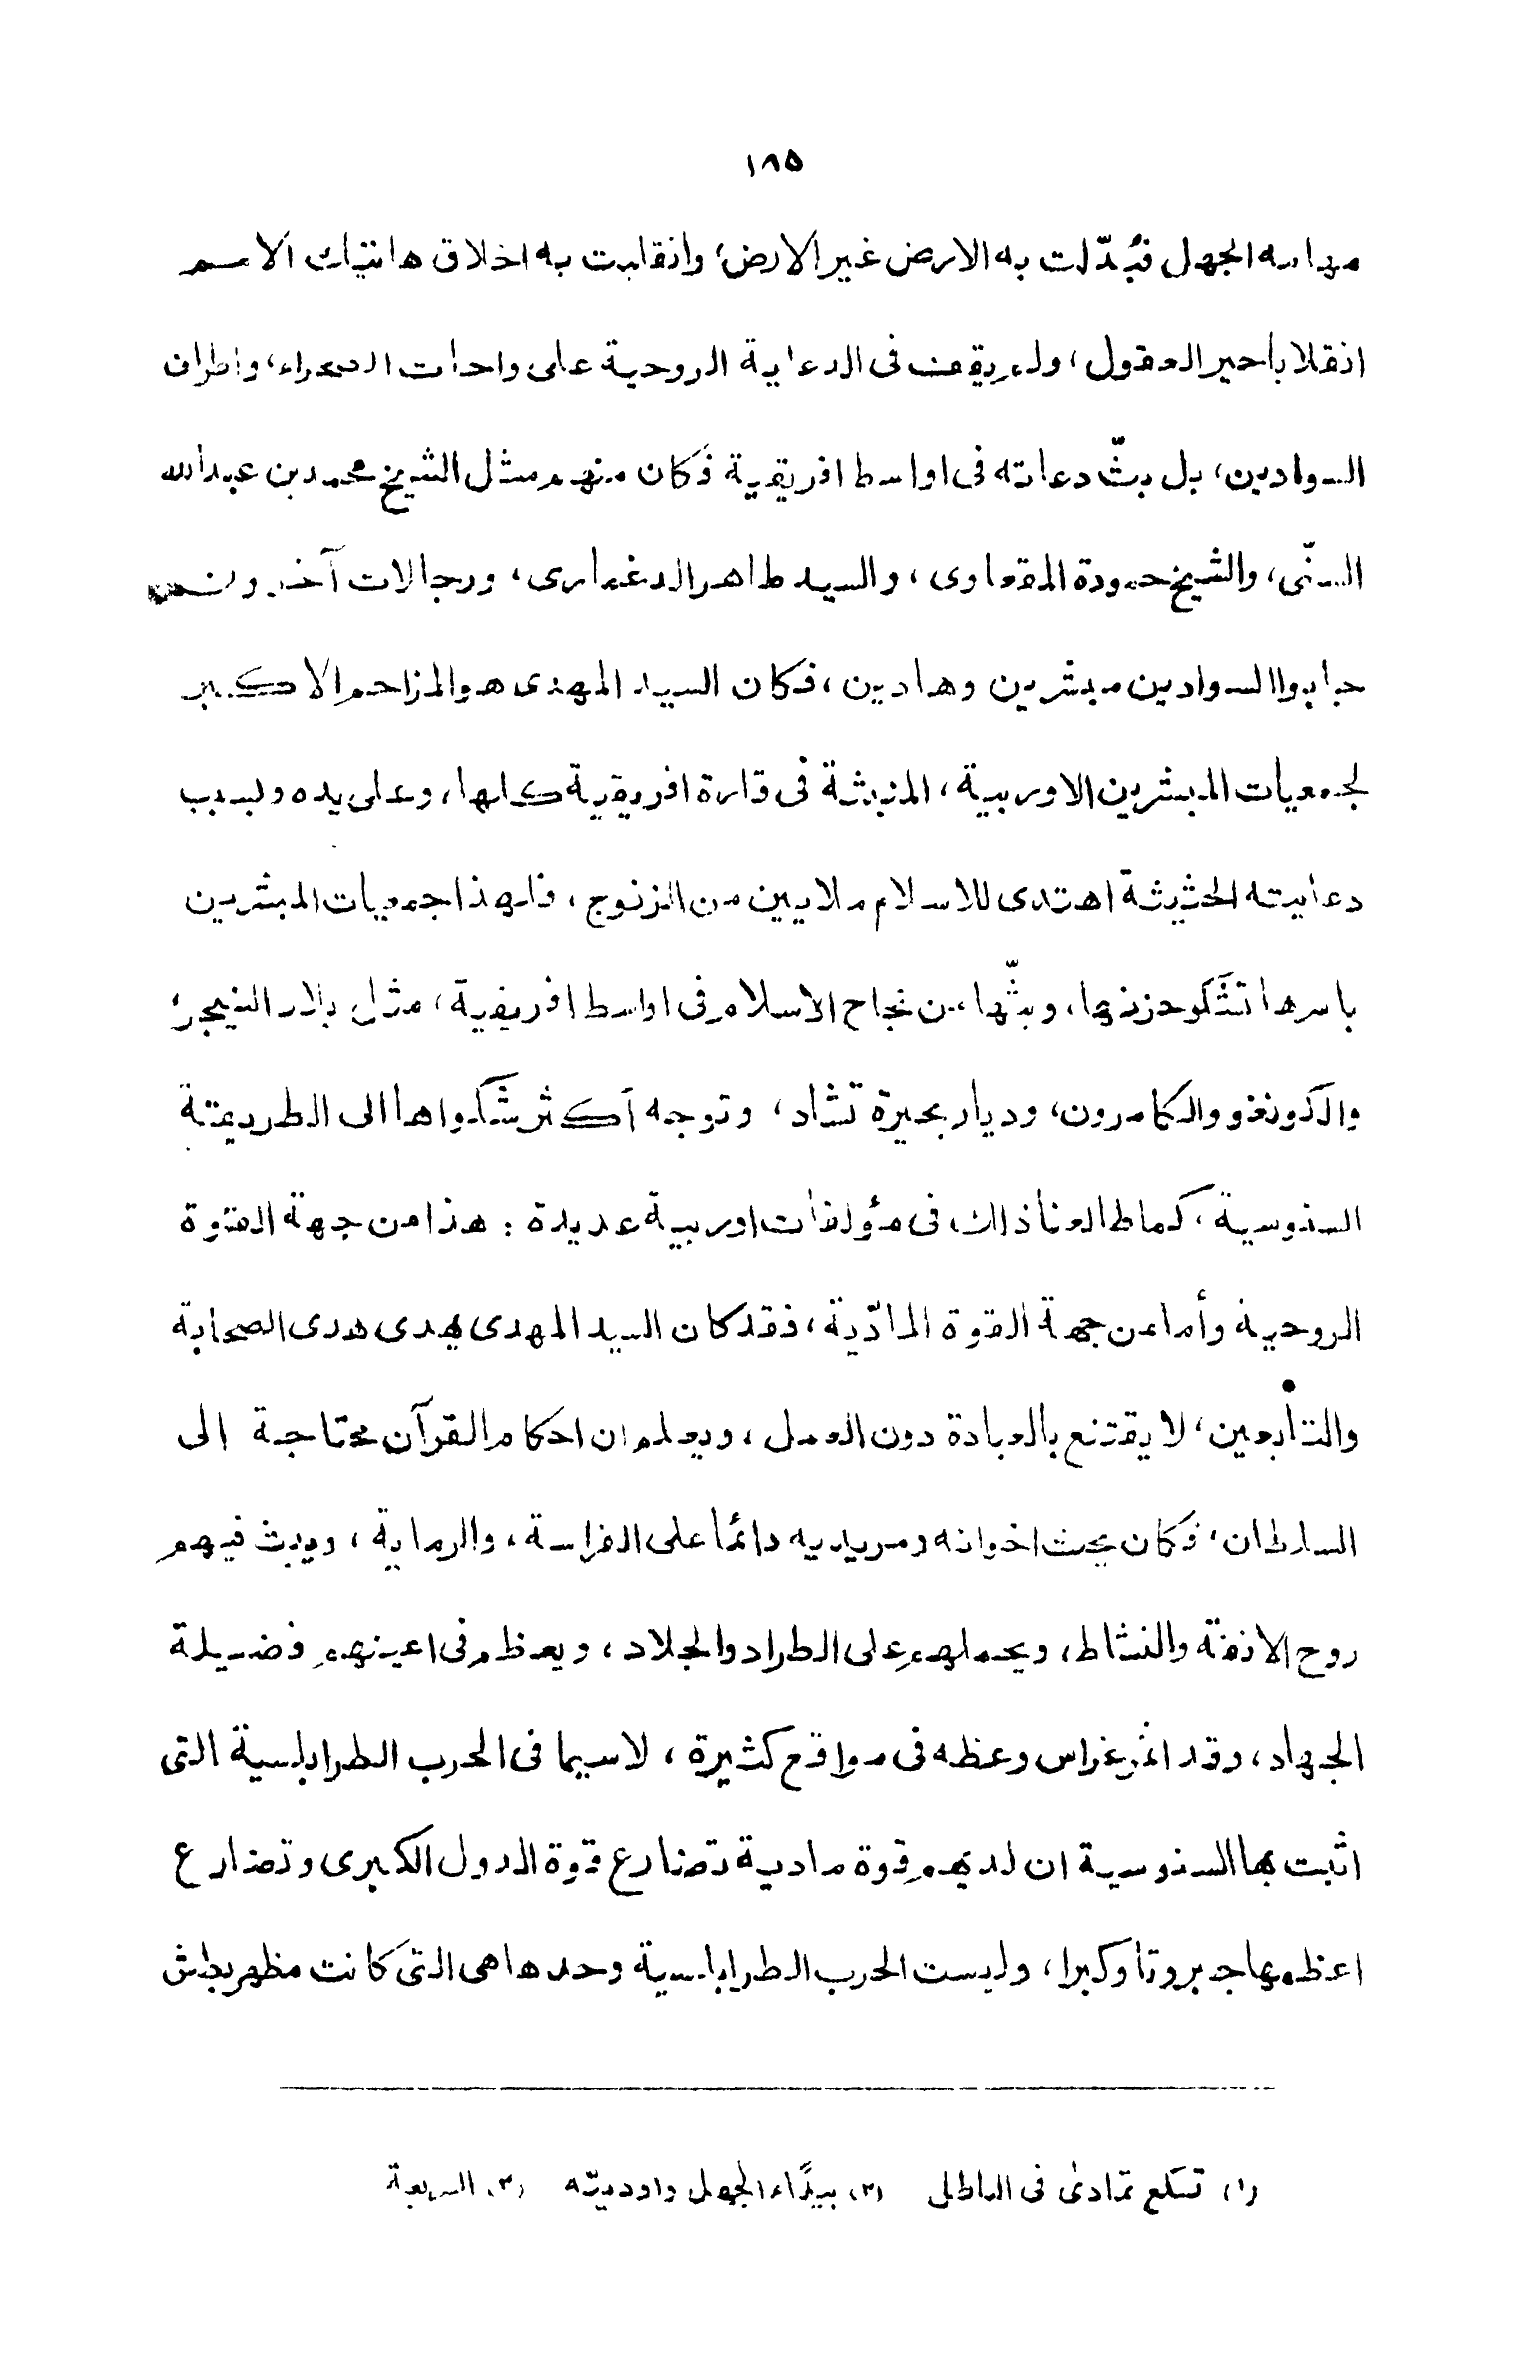 ١٨٥
مهامه الجهل فبُدّلت به الارض غير الارض، وانقلبت به اخلاق هاتيك الامم
انقلابا حير العقول، ولم يقف فى الدعاية الروحية على واحات الصحراء، واطراف
السوادين، بل بثّ دعاته فى اواسط افريقية فكان منهم مثل الشيخ محمد بن عبدالله
السنّى، والشيخ حمودة المقعاوى، والسيد طاهر الدغمارى، ورجالات آخرون
جابوا السوادين مبشرين وهادين، فكان السيد المهدى هو المزاحم الاكبر
لجمعيات المبشرين الاوربية، المنبثة فى قارة افريقية كلها، وعلى يده وبسبب
دعايته الحثيثة اهتدى للاسلام ملايين من الزنوج، فلهذا جمعيات المبشرين
باسرها تشكو حزنها، وبثّها من نجاح الاسلام فى اواسط افريقية، مثل بلاد النيجر،
والكونغو والكامرون، وديار بحيرة تشاد، وتوجه أكثر شكواها الى الطريقة
السنوسية، كما طالعنا ذلك فى مؤلفات اوربية عديدة : هذا من جهة القوة
الروحية وأما من جهة القوة المادّية، فقد كان السيد المهدى يهدى هدى الصحابة
والتابعين، لا يقتنع بالعبادة دون العمل، ويعلم ان احكام القرآن محتاجة الى
السلطان، فكان يحث اخوانه ومريديه دائمًا على الفراسة، والرماية، ويبث فيهم
روح الانفة والنشاط، ويحملهم على الطراد والجلاد، ويعظم فى اعينهم فضيلة
الجهاد، وقد اثمر غراس وعظه فى مواقع كثيرة، لاسيما فى الحرب الطرابلسية التى
اثبت بها السنوسية ان لديهم قوة مادية تضارع قوة الدول الكبرى وتضارع
اعظمها جبروتا وكبرا، وليست الحرب الطرابلسية وحدها هى التى كانت مظهر بطش
(١) تسكع تمادى فى الباطل (٢) بيداء الجهل واوديته (٣) السريعة